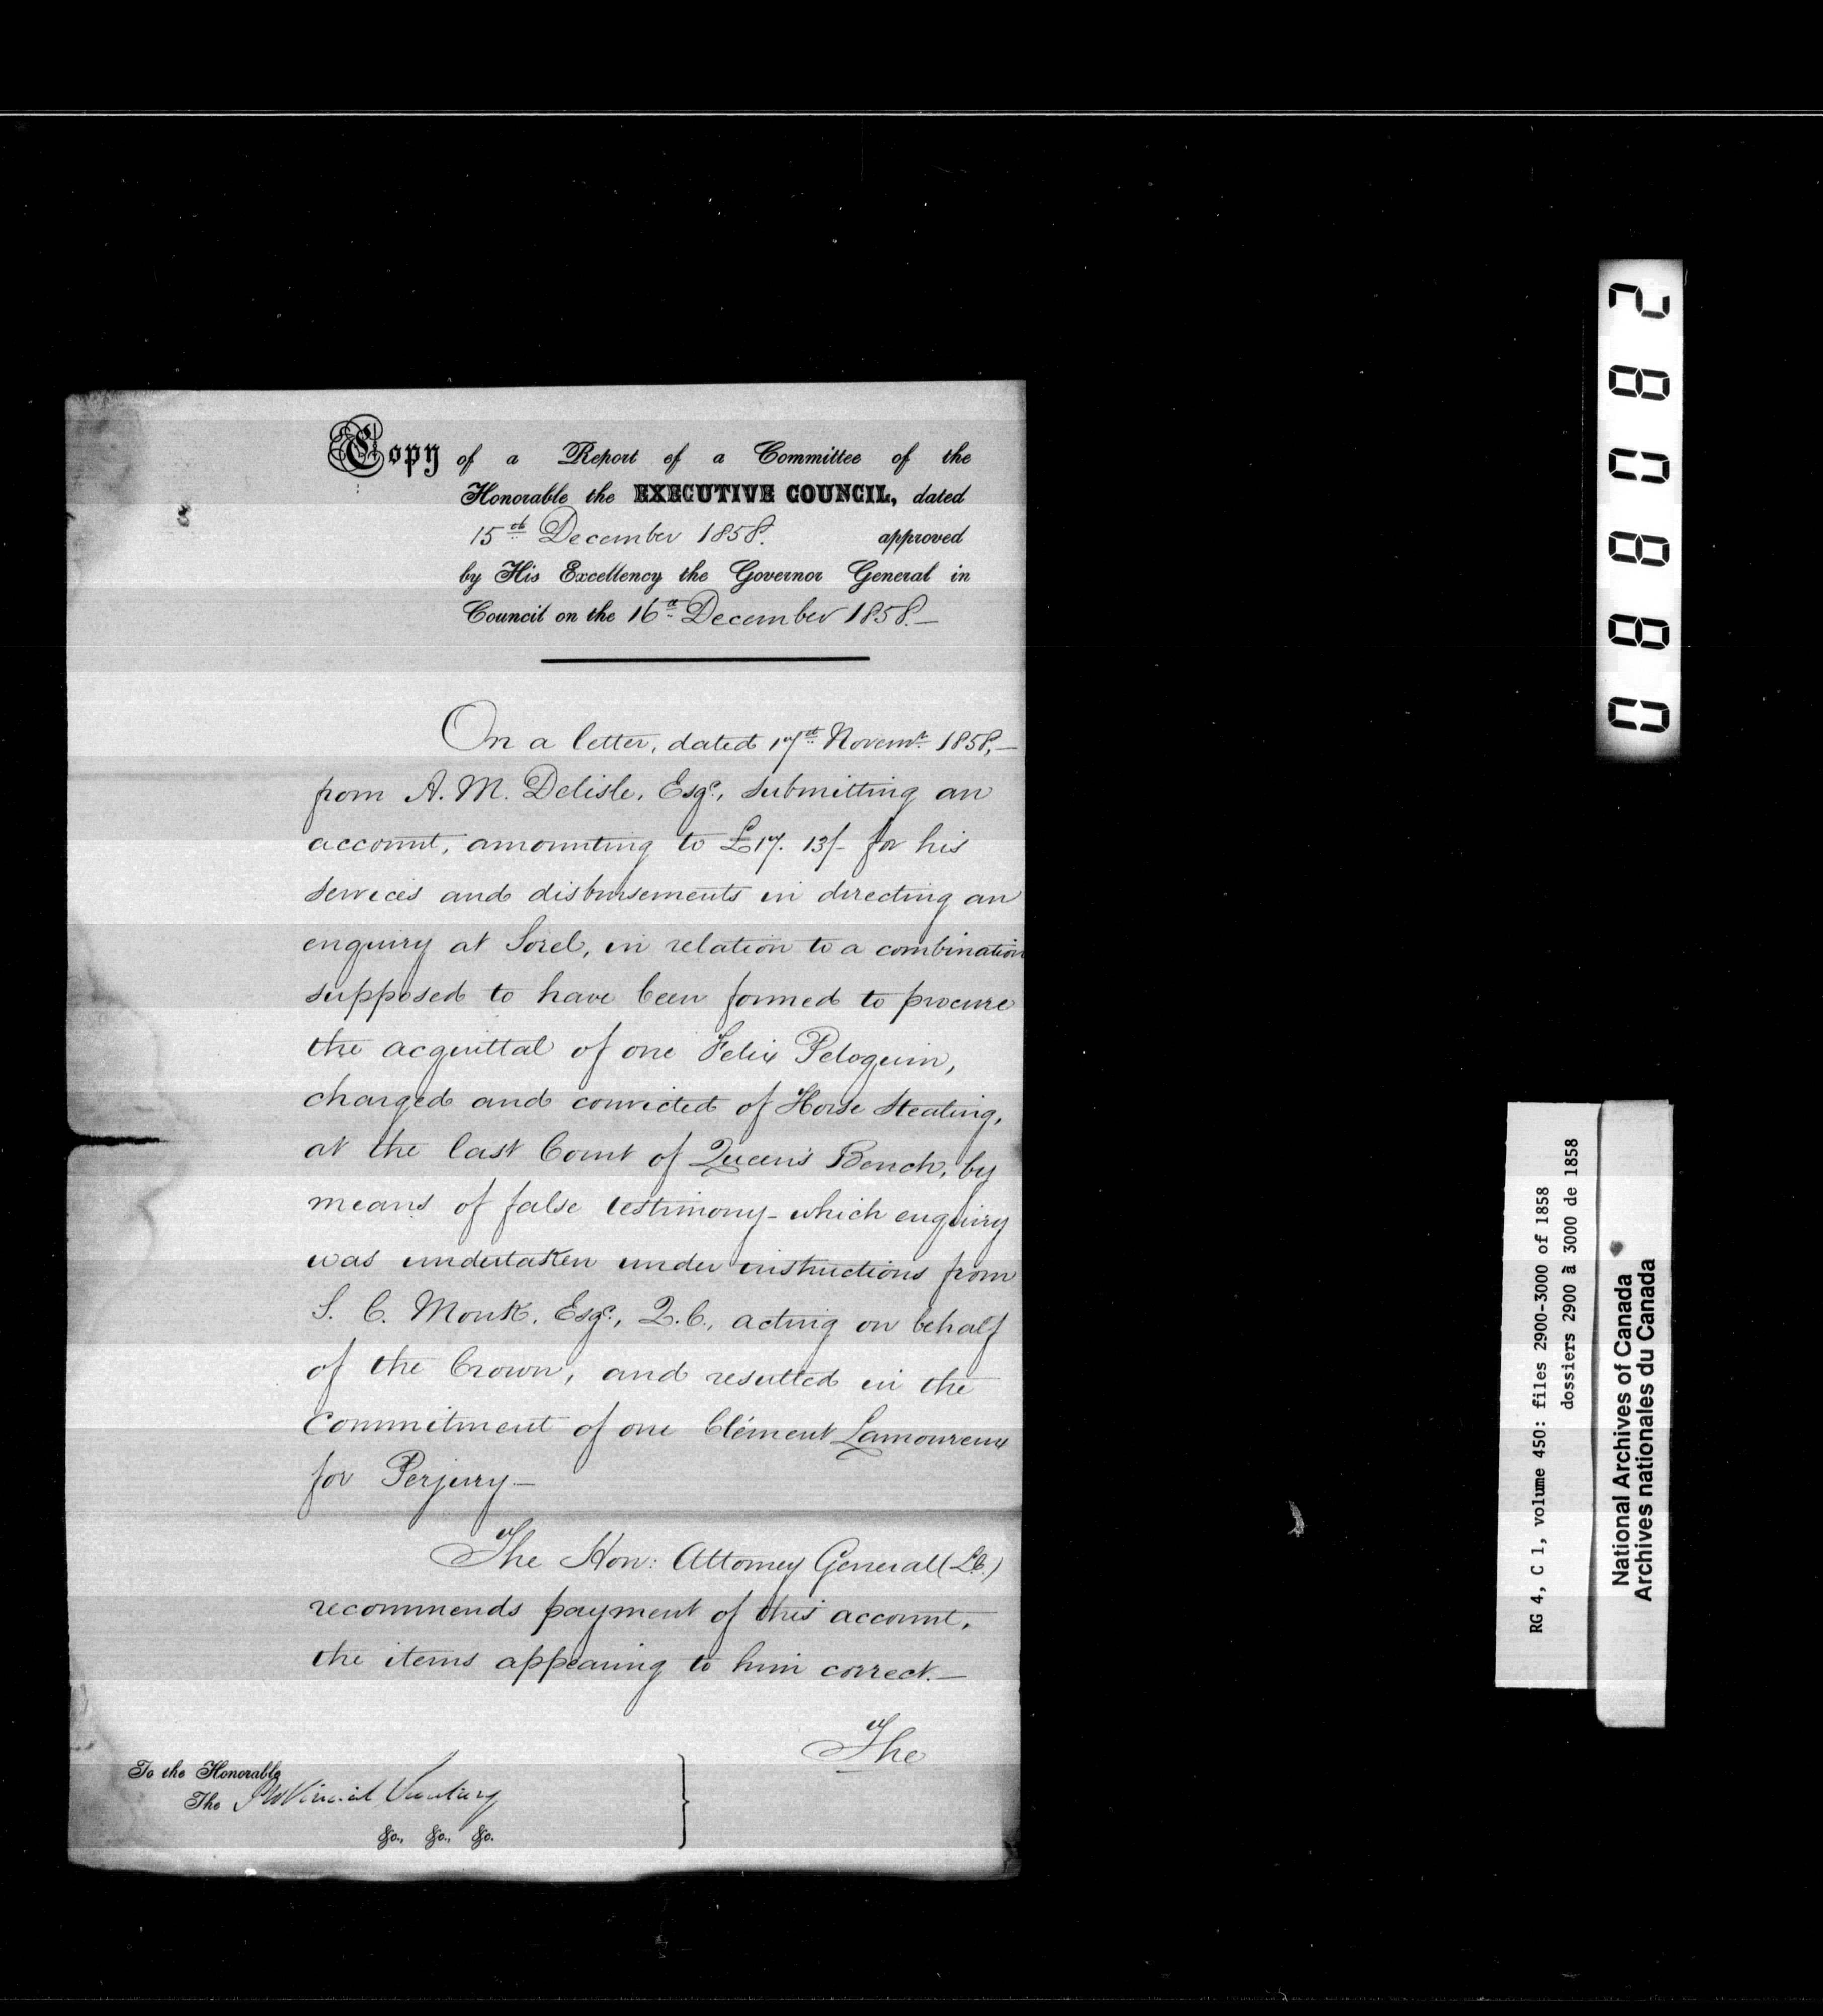 Copy of a Report of a Committee of the
Honorable the EXECUTIVE COUNCIL, dated
15th December 1858. approved
by His Excellency the Governor General in
Council on the 16th December 1858.—
On a letter, dated 17th Novemr. 1858,—
from A. M. Delisle, Esqe., submitting an
account, amounting to £17. 13/- for his
services and disbursements in directing an
enquiry at Sorel, in relation to a combination
supposed to have been formed to procure
the acquittal of one Felix Peloquin,
charged and convicted of Horse Stealing,
at the last Court of Queen's Bench, by
means of false testimony - which enquiry
was undertaken under instructions from
S. C. Monk, Esqe., Q.C., acting on behalf
of the Crown, and resulted in the
commitment of one Clément Lamoureux
for Perjury—
The Hon: Attorney General (L.C.)
recommends payment of this account,
the items appearing to him correct.—
The
To the Honorable
The Provincial Secretary
&c., &c., &c.
088082
RG 4, C 1, volume 450: files 2900-3000 of 1858
dossiers 2900 à 3000 de 1858
National Archives of Canada
Archives nationales du Canada